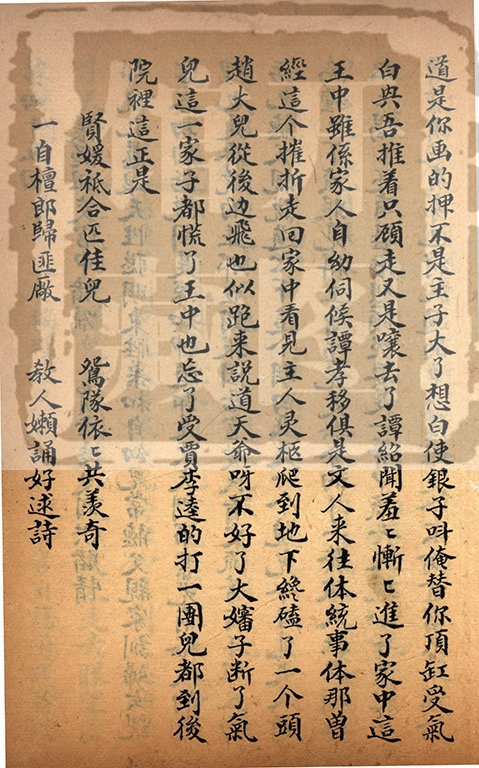 道是你画的押不是主子大了想白使銀子呌俺替你頂缸受氣
白與吾推着只顧走又是嚷去了譚紹聞羞〻慚〻進了家中這
王中雖係家人自幼伺候譚孝移俱是文人来往体統事体那曽
經這个摧折走回家中看見主人灵柩爬到地下終磕了一个頭
趙大兒從後边飛也似跑来説道天爺呀不好了大嬸子断了氣
兒這一家子都慌了王中也忘了受賈李逵的打一團兒都到後
院裡這正是
賢媛祗合匹佳兒　鴛隊依〻共羨奇
一自檀郎歸匪厰　教人嬾誦好逑詩